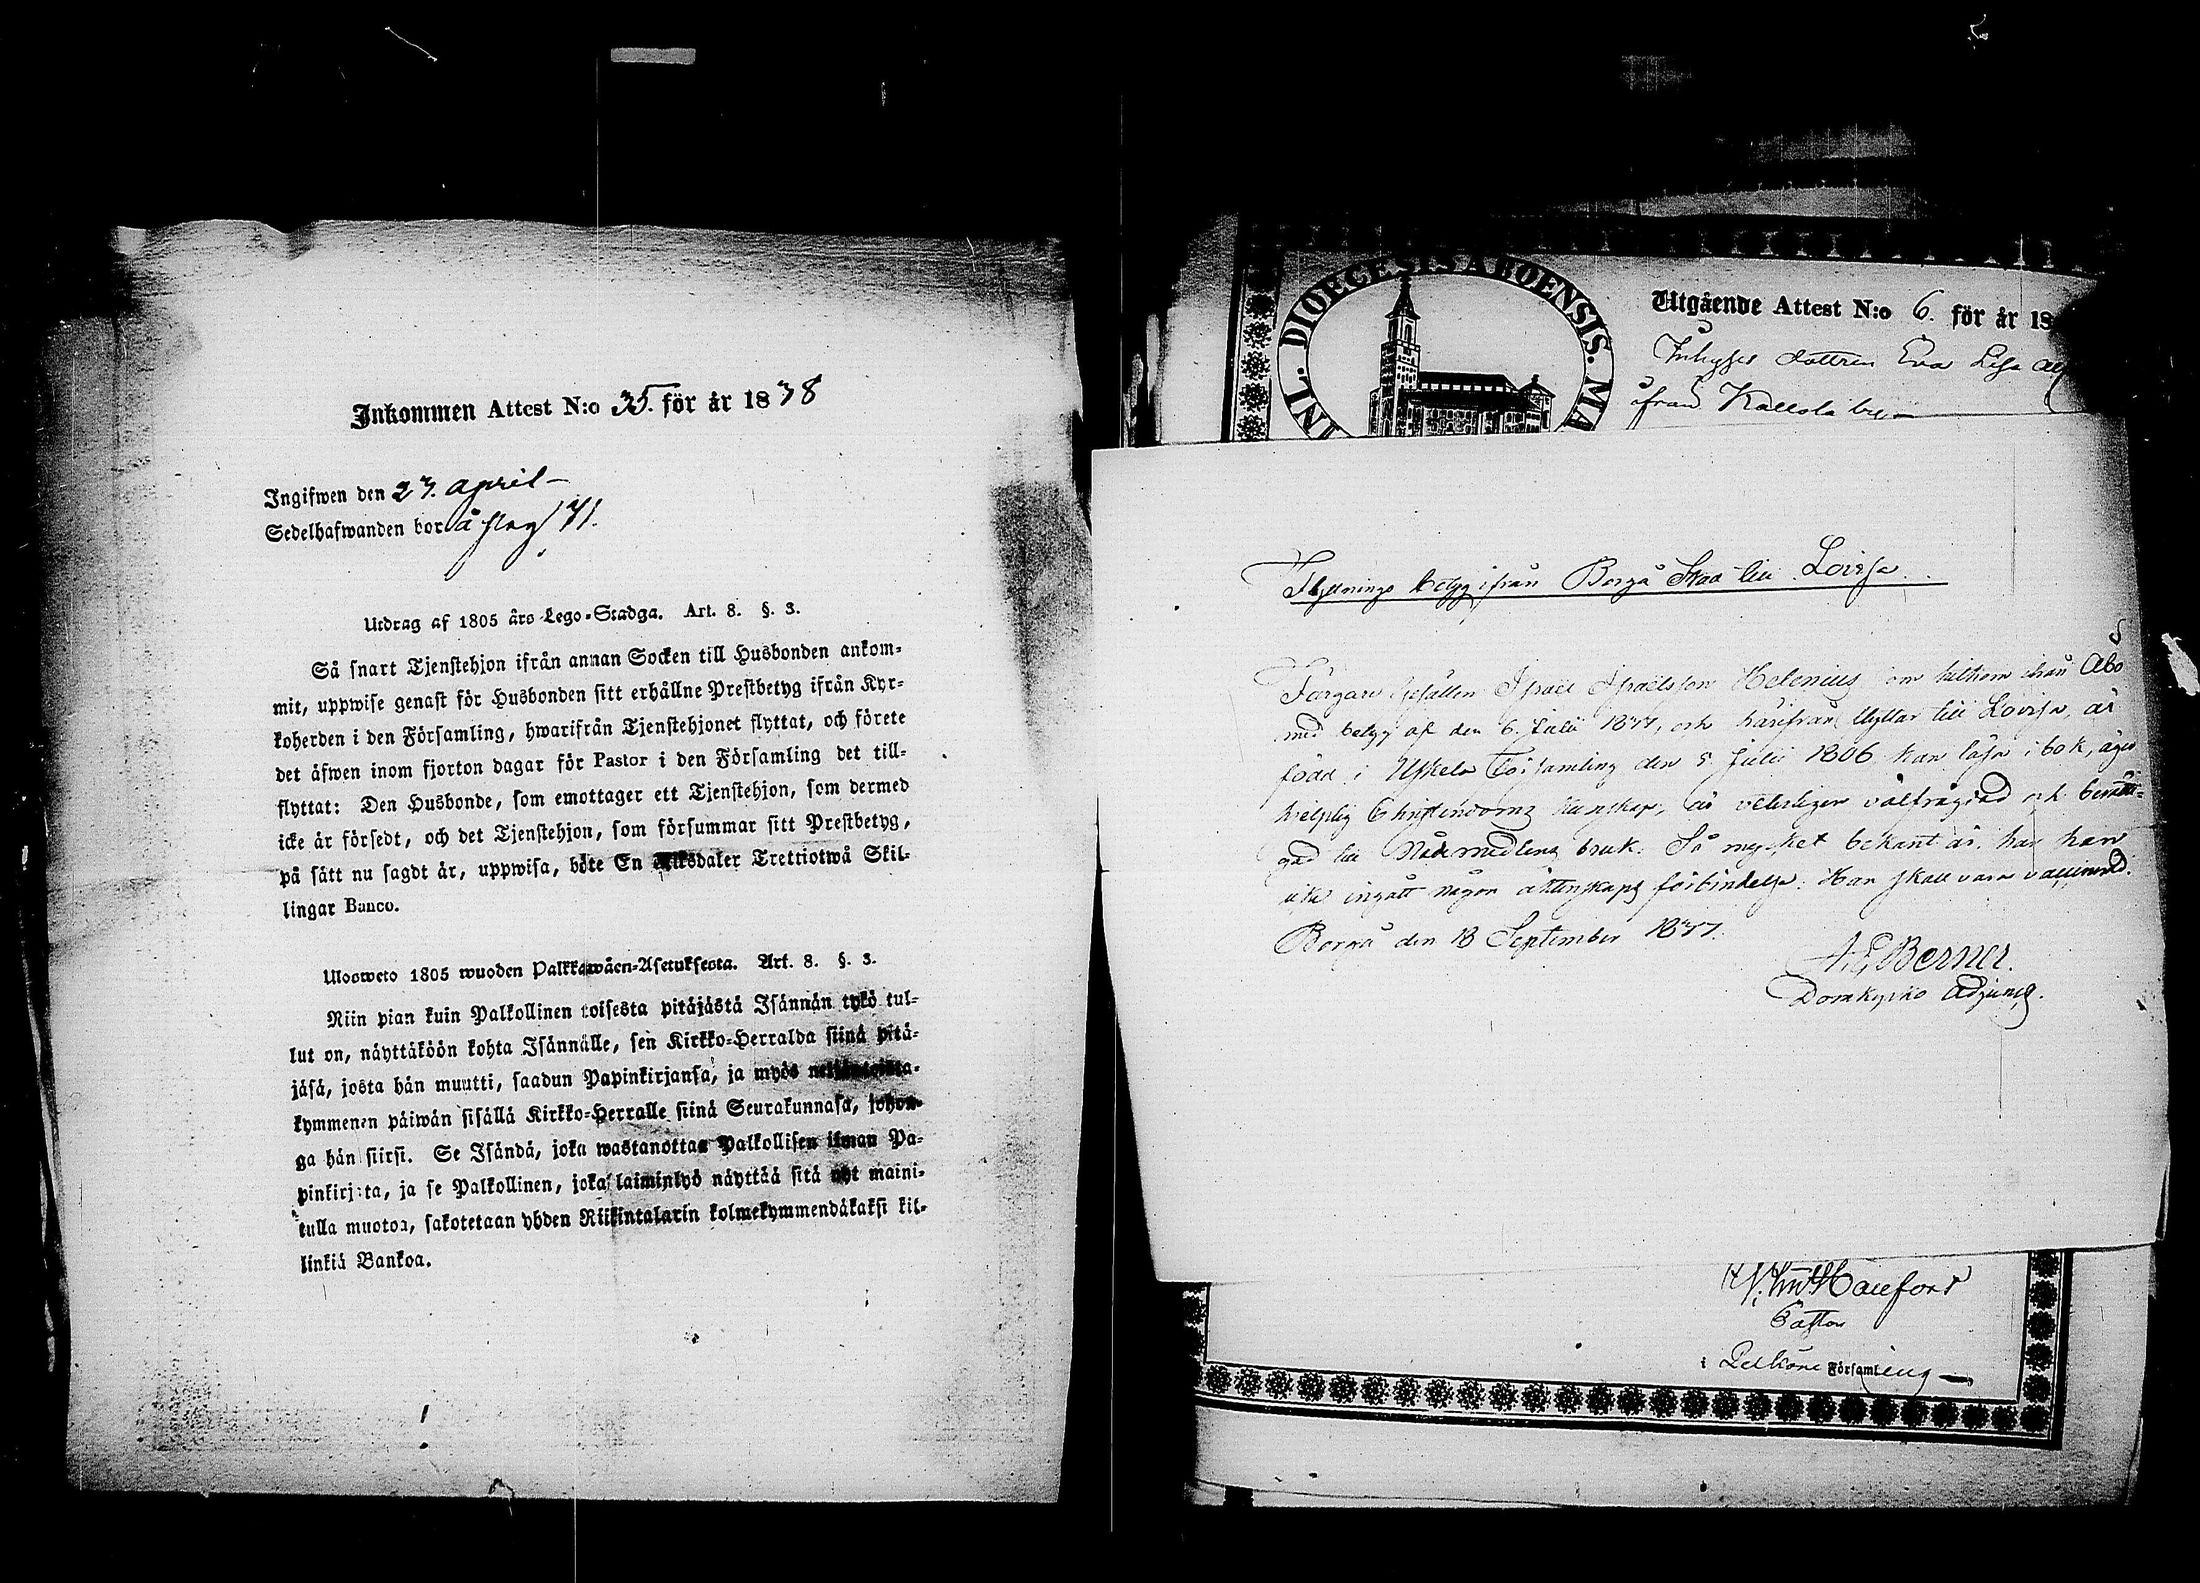 Inkommen Attest N:o 35. för år 1838
Ingifwen den 23. april
Sedelhafwanden bor å pag 171.
Utdrag af 1805 års Lego-Stadga. Art. 8. §. 3.
Så snart Tjenstehjon ifrån annan Socken till Husbonden ankom-
mit, uppwise genast för Husbonden sitt erhållne Prestbetyg ifrån Kyr-
koherden i den Församling, hwarifrån Tjenstehjonet flyttat, och förete
det äfwen inom fjorton dagar för Pastor i den Församling det till-
flyttat: Den Husbonde, som emottager ett Tjenstehjon, som dermed
icke är försedt, och det Tjenstehjon, som försummar sitt Prestbetyg,
på sätt nu sagdt är, uppwisa, böte En Riksdaler Trettiotwå Skil-
lingar Banco.
Ulosweto 1805 wuoden Palkkawäen-Asetuksesta. Art. 8. §. 3.
Niin pian kuin Palkollinen toisesta pitäjästä Isännän tykö tul-
lut on, näyttäköön kohta Isännälle, sen Kirkko-Herralda siinä pitä-
jäsä, josta hän muutti, saadun Papinkirjansa, ja myös neljäntoista-
kymmenen päiwän sisällä Kirkko-Herralle siinä Seurakunnasa, johon-
ga hän siirsi. Se Isändä, joka wastanottaa Palkollisen ilman Pa-
pinkirjata, ja se Palkollinen, joka laiminlyö näyttää sitä nyt maini-
tulla muotoa, sakotetaan yhden Riikintalarin kolmekymmendäkaksi kil-
linkiä Bankoa.
INL. DIOECESIS ABOENSIS. MA
Utgående Attest N:o 6. för år 18
Inhyses dottren Eva Lisa
ifrån Kallola by
Flyttnings betyg ifrån Borgå Stad till Lovisa
5
Färgare Gesällen Israel Israelsson Helenius som hitkom ifrån Åbo
med betyg af den 6. Julii 1837, och härifrån flyttar till Lovisa, är
född i Uskela Församling den 5 Julii 1806 kan läsa i bok, äger
hjelplig Christendoms kunskap, är veterligen välfrägdad och berätti-
gad till Nådemedlens bruk. Så mycket bekant är, har han
icke ingått någon äktenskaps förbindelse. Han skall vara vaccinerad.
Borgå den 18 September 1837.
A. E. Berner.
Domkyrko Adjunct.
Pastor
i Pelkäne Församling